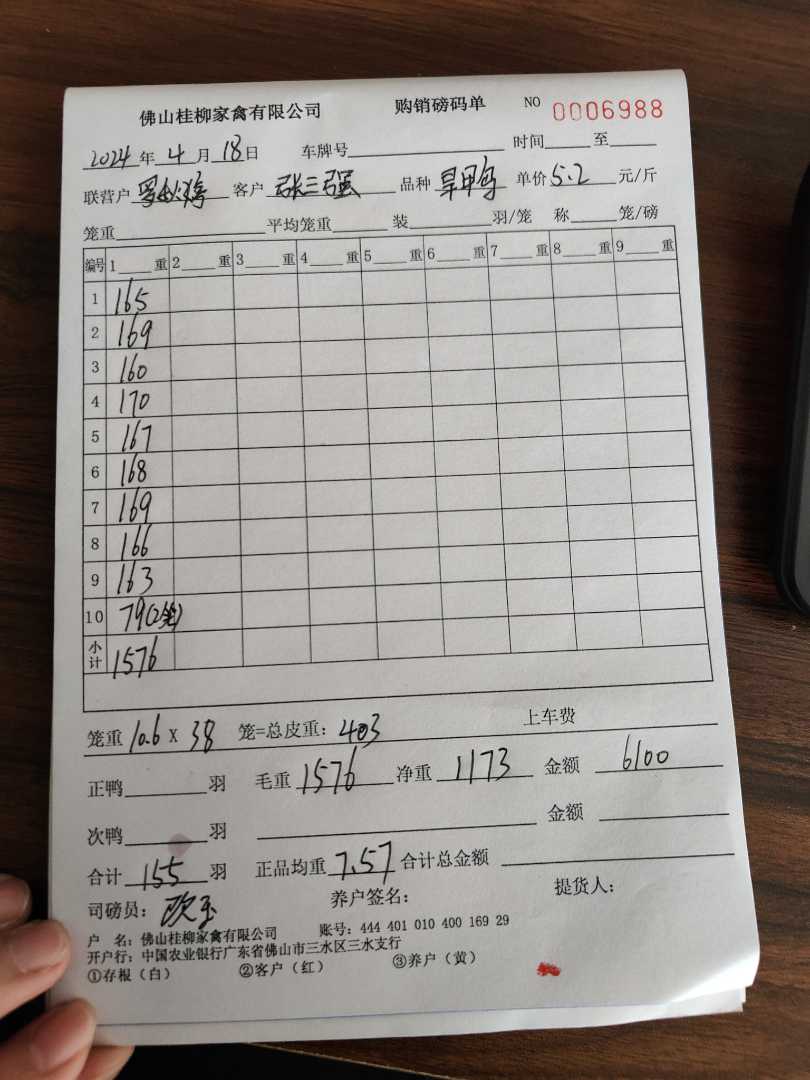 佛山桂柳家禽有限公司 购销磅码单 NO 0006988
2024 年 4 月 18 日 车牌号 时间 至
联营户 客户 张三强 品种 旱甲鸟 单价 5.2 元/斤
笼重 平均笼重 装 羽/笼 称 笼/磅
编号 1 重 2 重 3 重 4 重 5 重 6 重 7 重 8 重 9 重
1 165
2 169
3 160
4 170
5 167
6 168
7 169
8 166
9 163
10 79(2笼)
小计 1576
笼重 10.6 X 38 笼=总皮重: 403 上车费
正鸭 羽 毛重 1576 净重 1173 金额 6100
次鸭 羽 金额
合计 155 羽 正品均重 7.57 合计总金额
司磅员: 欧玉 养户签名: 提货人:
户 名: 佛山桂柳家禽有限公司 账号: 444 401 010 400 169 29
开户行: 中国农业银行广东省佛山市三水区三水支行
①存根(白) ②客户(红) ③养户(黄)